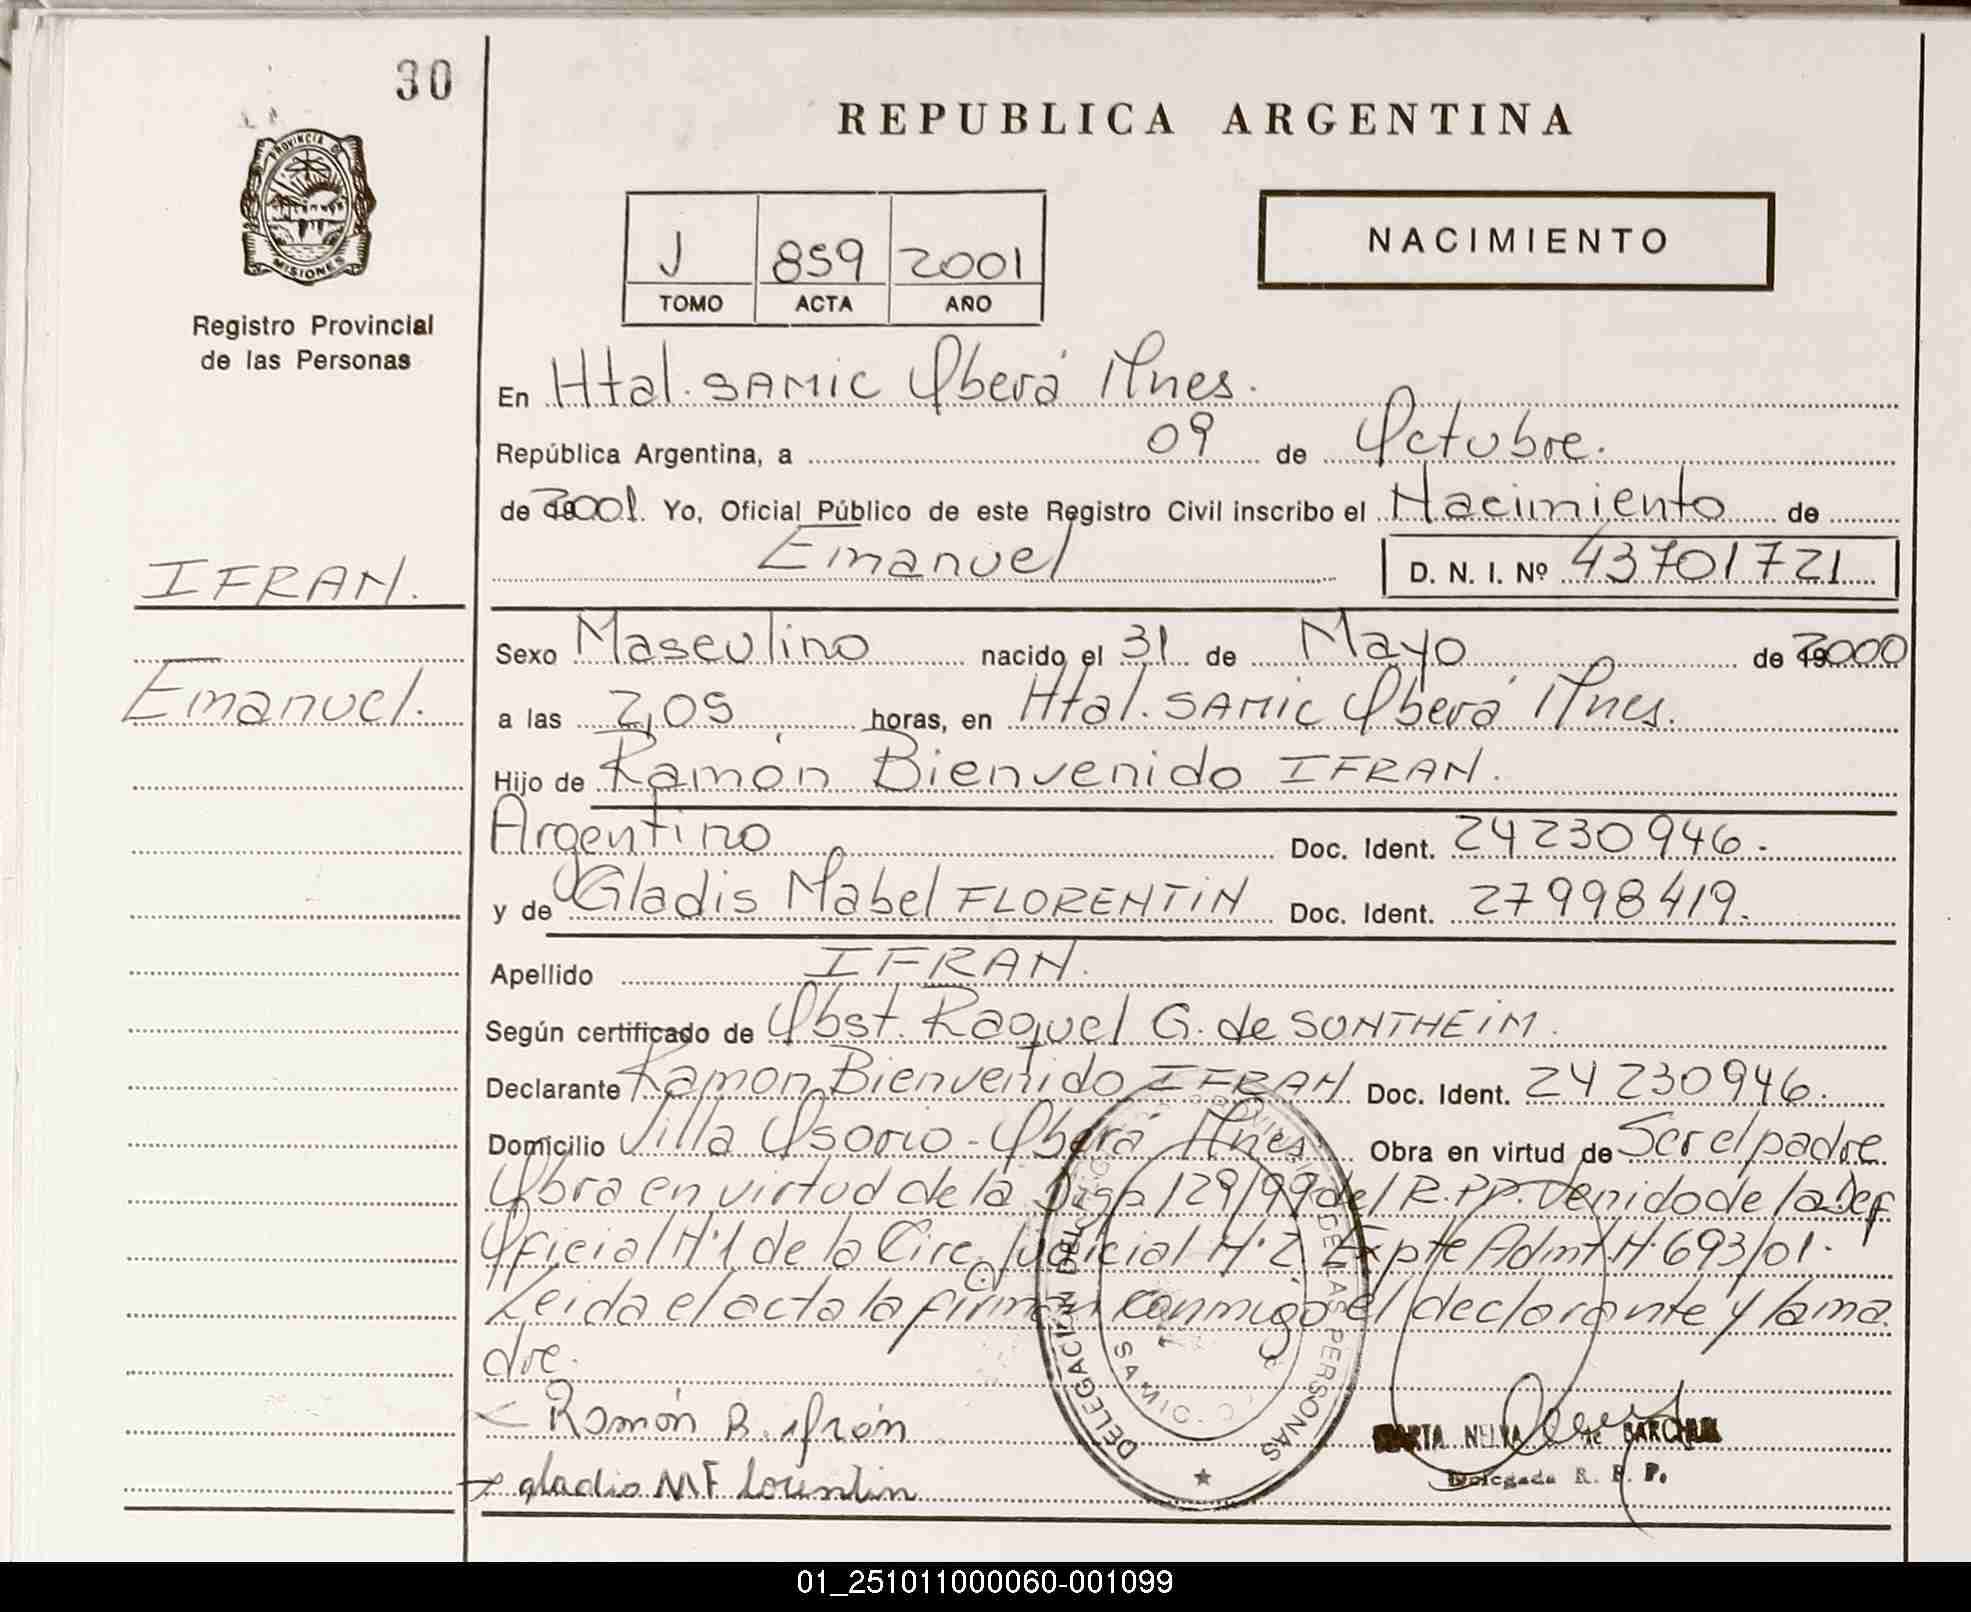 30
REPUBLICA ARGENTINA
PROVINCIA DE
MISIONES
Registro Provincial
de las Personas
J 859 2001
TOMO ACTA AÑO
NACIMIENTO
En Htal. SAMIC Oberá Mnes.
República Argentina, a 09 de Octubre.
de 2001. Yo, Oficial Público de este Registro Civil inscribo el Nacimiento de
Emanuel D. N. I. Nº 43701721
IFRAN.
Emanuel.
Sexo Masculino nacido el 31 de Mayo de 2000
a las 2,05 horas, en Htal. SAMIC Oberá Mnes.
Hijo de Ramón Bienvenido IFRAN.
Argentino Doc. Ident. 24230946.
y de Gladis Mabel FLORENTIN Doc. Ident. 27998419.
Apellido IFRAN.
Según certificado de Obst. Raquel G. de SONTHEIM.
Declarante Ramon Bienvenido IFRAN Doc. Ident. 24230946.
Domicilio Villa Osorio - Oberá Mnes Obra en virtud de Ser el padre
Obra en virtud de la Disp 129/99 del R.P.P. Venido de la Def
Oficial N°1 de la Circ. Judicial N°2 Expte Admt. N° 693/01.
Leida el acta la firman conmigo el declarante y la ma
dre.
Ramón B. ifrán
gladis M F lorentin
DELEGACIÓN DEL REGISTRO PROVINCIAL DE LAS PERSONAS
SAMIC
MARTA NELVA de
Delegada R. P. P.
01_251011000060-001099